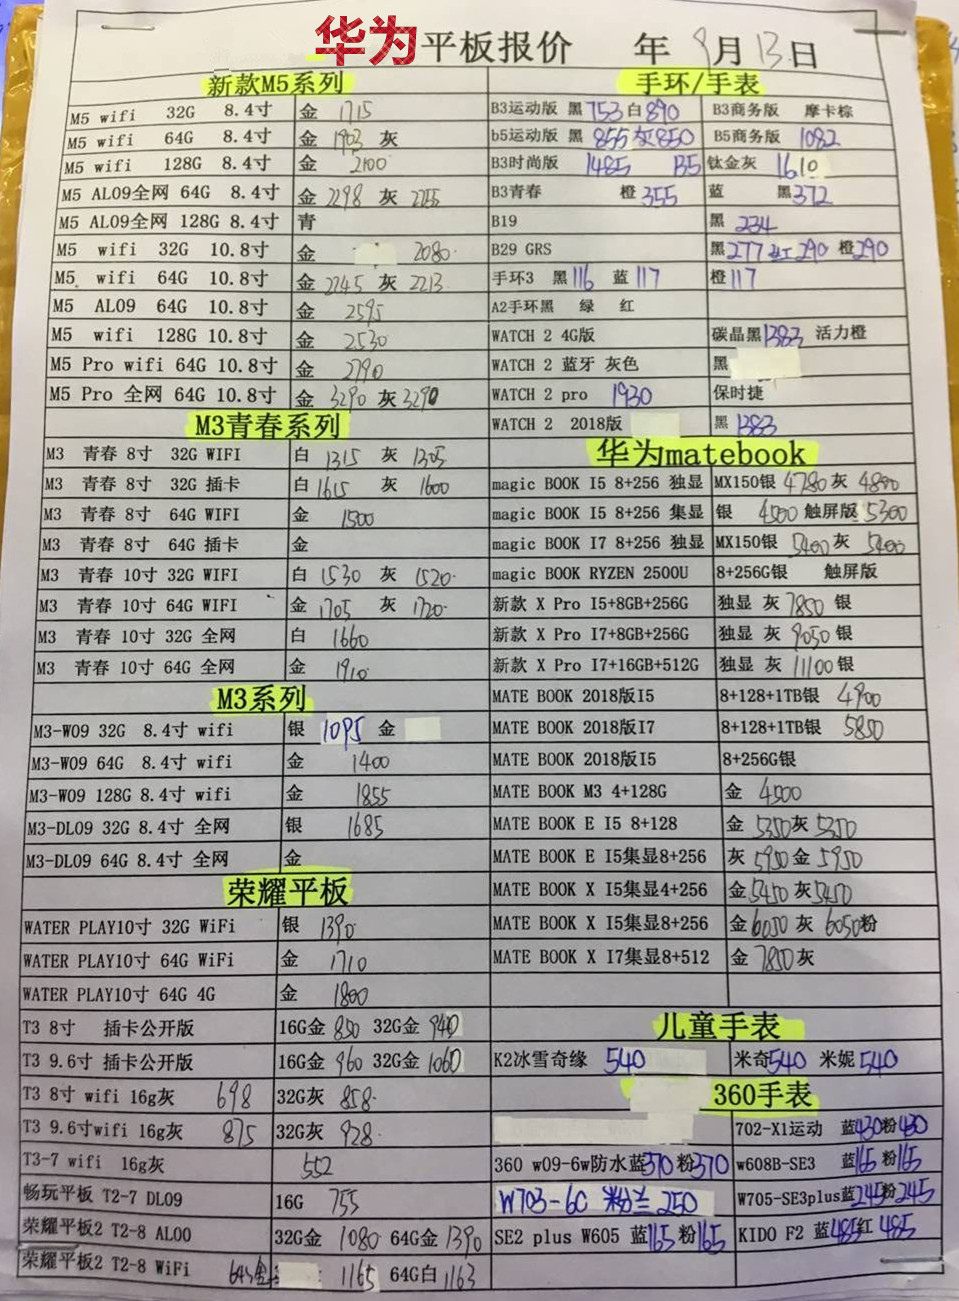 华为平板报价 年 9月13日
新款M5系列
M5 wifi 32G 8.4寸 金 1715
M5 wifi 64G 8.4寸 金 1903 灰
M5 wifi 128G 8.4寸 金 2100
M5 AL09全网 64G 8.4寸 金 2298 灰 2255
M5 AL09全网 128G 8.4寸 青
M5 wifi 32G 10.8寸 金 2080
M5 wifi 64G 10.8寸 金 2245 灰 2213
M5 AL09 64G 10.8寸 金 2595
M5 wifi 128G 10.8寸 金 2530
M5 Pro wifi 64G 10.8寸 金 2790
M5 Pro 全网 64G 10.8寸 金 3290 灰 3290
M3青春系列
M3 青春 8寸 32G WIFI 白 1315 灰 1305
M3 青春 8寸 32G 插卡 白 1615 灰 1600
M3 青春 8寸 64G WIFI 金 1500
M3 青春 8寸 64G 插卡 金
M3 青春 10寸 32G WIFI 白 1530 灰 1520
M3 青春 10寸 64G WIFI 金 1705 灰 1720
M3 青春 10寸 32G 全网 白 1660
M3 青春 10寸 64G 全网 金 1910
M3系列
M3-W09 32G 8.4寸 wifi 银 1095 金
M3-W09 64G 8.4寸 wifi 金 1400
M3-W09 128G 8.4寸 wifi 金 1855
M3-DL09 32G 8.4寸 全网 银 1685
M3-DL09 64G 8.4寸 全网 金
荣耀平板
WATER PLAY10寸 32G WiFi 银 1390
WATER PLAY10寸 64G WiFi 金 1710
WATER PLAY10寸 64G 4G 金 1800
T3 8寸 插卡公开版 16G金 850 32G金 940
T3 9.6寸 插卡公开版 16G金 960 32G金 1060
T3 8寸 wifi 16g灰 698 32G灰 858
T3 9.6寸wifi 16g灰 875 32G灰 928
T3-7 wifi 16g灰 552
畅玩平板 T2-7 DL09 16G 755
荣耀平板2 T2-8 AL00 32G金 1080 64G金 1390
荣耀平板2 T2-8 WiFi 64G金 1165 64G白 1163
手环/手表
B3运动版 黑 753 白 890 B3商务版 摩卡棕
b5运动版 黑 855 灰850 B5商务版 1082
B3时尚版 1485 B5 钛金灰 1610
B3青春 橙 355 蓝 黑 372
B19 黑 234
B29 GRS 黑 277 红 290 橙 290
手环3 黑 116 蓝 117 橙 117
A2手环黑 绿 红
WATCH 2 4G版 碳晶黑 1383 活力橙
WATCH 2 蓝牙 灰色 黑
WATCH 2 pro 1930 保时捷
WATCH 2 2018版 黑 1383
华为matebook
magic BOOK I5 8+256 独显 MX150银 4780 灰 4890
magic BOOK I5 8+256 集显 银 4500 触屏版 5300
magic BOOK I7 8+256 独显 MX150银 5400 灰 5400
magic BOOK RYZEN 2500U 8+256G银 触屏版
新款 X Pro I5+8GB+256G 独显 灰 7850 银
新款 X Pro I7+8GB+256G 独显 灰 9050 银
新款 X Pro I7+16GB+512G 独显 灰 11100 银
MATE BOOK 2018版I5 8+128+1TB银 4900
MATE BOOK 2018版I7 8+128+1TB银 5850
MATE BOOK 2018版I5 8+256G银
MATE BOOK M3 4+128G 金 4500
MATE BOOK E I5 8+128 金 5350 灰 5350
MATE BOOK E I5集显8+256 灰 5950 金 5950
MATE BOOK X I5集显4+256 金 5450 灰 5450
MATE BOOK X I5集显8+256 金 6050 灰 6050 粉
MATE BOOK X I7集显8+512 金 7850 灰
儿童手表
K2冰雪奇缘 540 米奇 540 米妮 540
360手表
702-X1运动 蓝430 粉430
360 w09-6w防水蓝370 粉370 w608B-SE3 蓝165 粉165
W703-6C 粉兰 250 W705-SE3plus蓝245粉245
SE2 plus W605 蓝165 粉165 KIDO F2 蓝485红 485